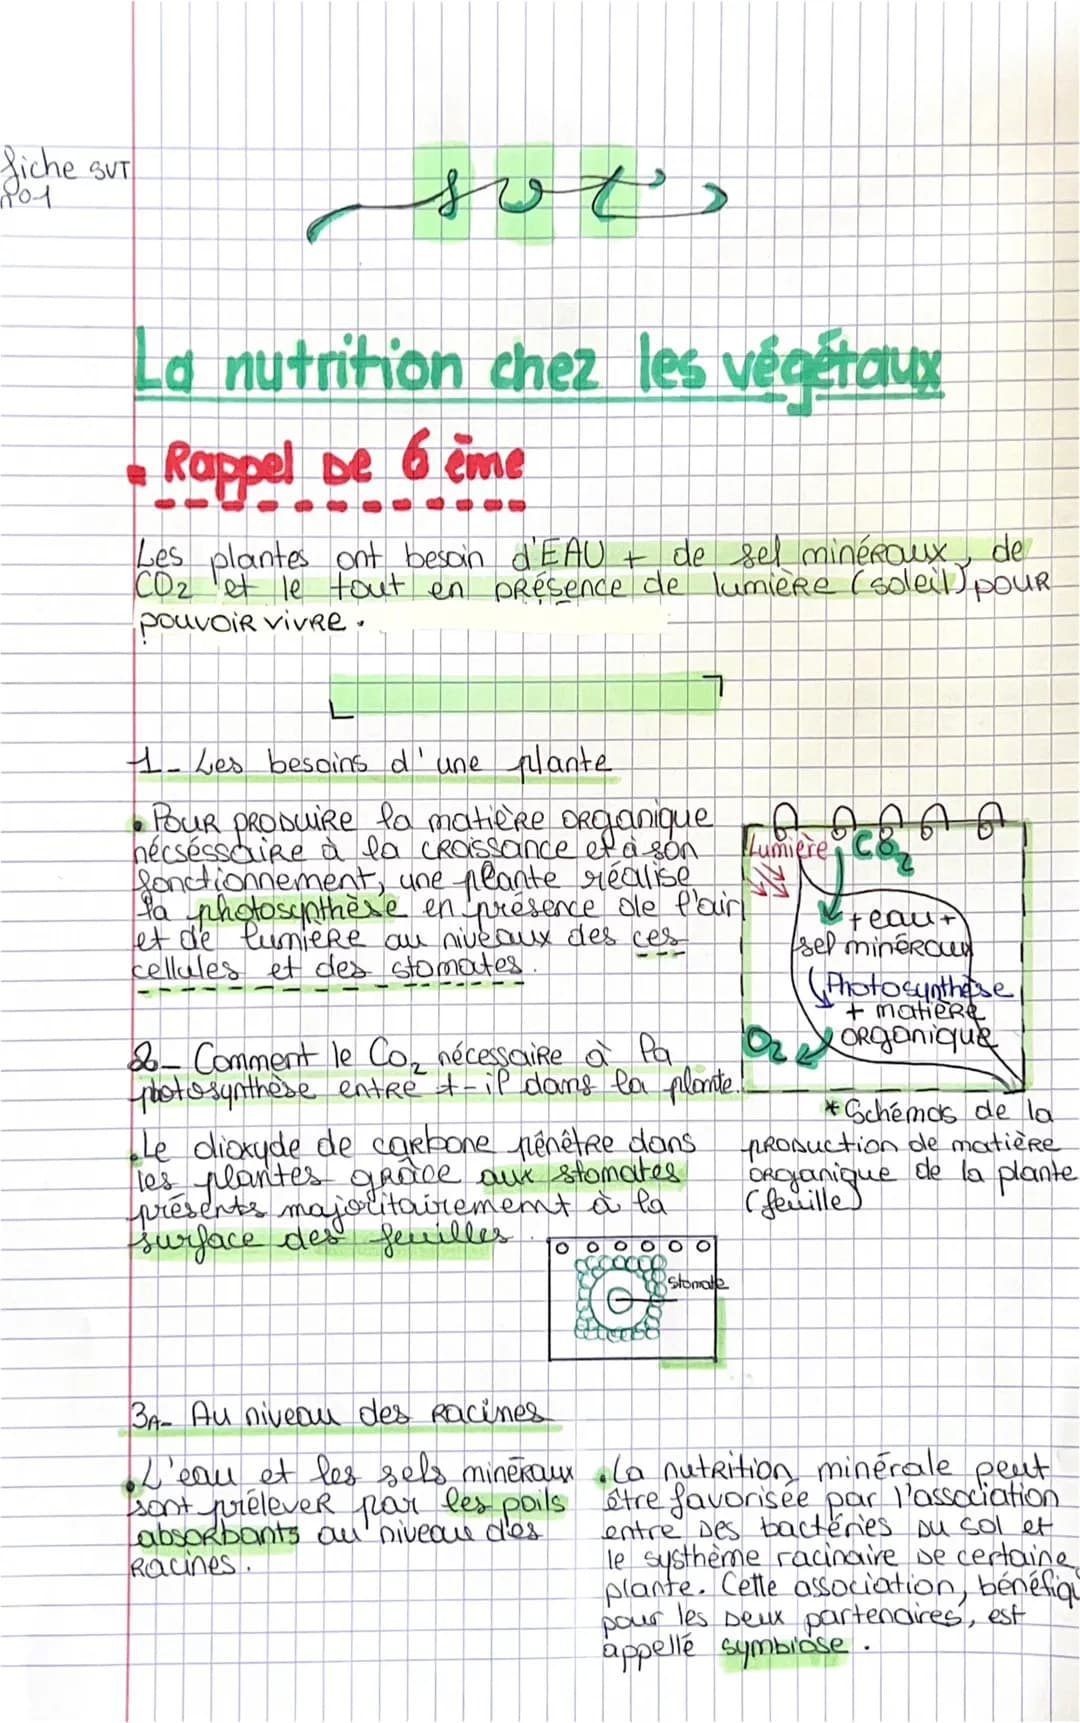 fiche SVT
n°01
svt
La nutrition chez les végétaux
Rappel de 6 ème
Les plantes ont besoin d'EAU + de sel minéraux, de
CO2 et le tout en présence de lumière (soleil) pour
pouvoir vivre.
1- Les besoins d'une plante
• Pour produire la matière organique
nécséssaire à la croissance et à son
fonctionnement, une plante réalise
la photosynthèse en présence de l'air
et de lumière au niveaux des ces
cellules et des stomates.
Lumière CO2
+ eau +
sel minéraux
Photosynthèse
+ matière
organique
O2
* Schémas de la
production de matière
organique de la plante
(feuille)
2- Comment le CO2 nécessaire à la
photosynthèse entre t-il dans la plante.
• Le dioxyde de carbone pénêtre dans
les plantes grâce aux stomates
présents majoritairement à la
surface des feuilles.
Stomate
3A- Au niveau des racines
• L'eau et les sels minéraux
sont prélever par les poils
absorbants au niveau des
racines.
• La nutrition minérale peut
être favorisée par l'association
entre des bactéries du sol et
le systhème racinaire de certaine
plante. Cette association, bénéfiqu
pour les deux partenaires, est
appellé symbiose.